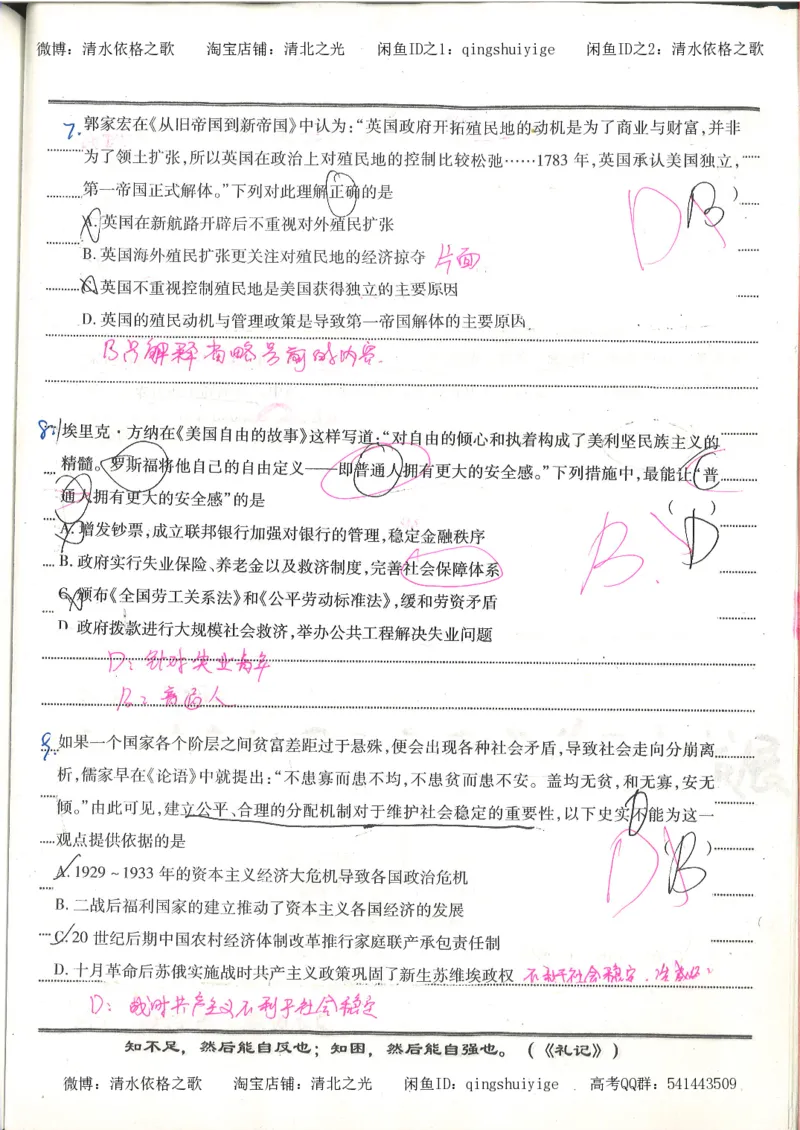 微博：清水依格之歌 淘宝店铺：清北之光 闲鱼ID之1：qingshuiyige 闲鱼ID之2：清水依格之歌
7. 郭家宏在《从旧帝国到新帝国》中认为：“英国政府开拓殖民地的动机是为了商业与财富，并非
为了领土扩张，所以英国在政治上对殖民地的控制比较松弛……1783 年，英国承认美国独立，
第一帝国正式解体。”下列对此理解正确的是 D B )
A. 英国在新航路开辟后不重视对外殖民扩张
B. 英国海外殖民扩张更关注对殖民地的经济掠夺 片面
C. 英国不重视控制殖民地是美国获得独立的主要原因
D. 英国的殖民动机与管理政策是导致第一帝国解体的主要原因
B只解释省略号前的内容.
8. 埃里克·方纳在《美国自由的故事》这样写道：“对自由的倾心和执着构成了美利坚民族主义的
精髓。罗斯福将他自己的自由定义——即普通人拥有更大的安全感。”下列措施中，最能让“普
通人拥有更大的安全感”的是
B. ( D )
A. 增发钞票，成立联邦银行加强对银行的管理，稳定金融秩序
B. 政府实行失业保险、养老金以及救济制度，完善社会保障体系
C. 颁布《全国劳工关系法》和《公平劳动标准法》，缓和劳资矛盾
D 政府拨款进行大规模社会救济，举办公共工程解决失业问题
D：针对失业青年
B：普通人
9. 如果一个国家各个阶层之间贫富差距过于悬殊，便会出现各种社会矛盾，导致社会走向分崩离
析，儒家早在《论语》中就提出：“不患寡而患不均，不患贫而患不安。盖均无贫，和无寡，安无
倾。”由此可见，建立公平、合理的分配机制对于维护社会稳定的重要性，以下史实不能为这一
观点提供依据的是 D ( B )
A. 1929～1933 年的资本主义经济大危机导致各国政治危机
B. 二战后福利国家的建立推动了资本主义各国经济的发展
C. 20 世纪后期中国农村经济体制改革推行家庭联产承包责任制
D. 十月革命后苏俄实施战时共产主义政策巩固了新生苏维埃政权 不利于社会稳定.
D：战时共产主义不利于社会稳定
知不足，然后能自反也；知困，然后能自强也。（《礼记》）
微博：清水依格之歌 淘宝店铺：清北之光 闲鱼ID：qingshuiyige 高考QQ群：541443509